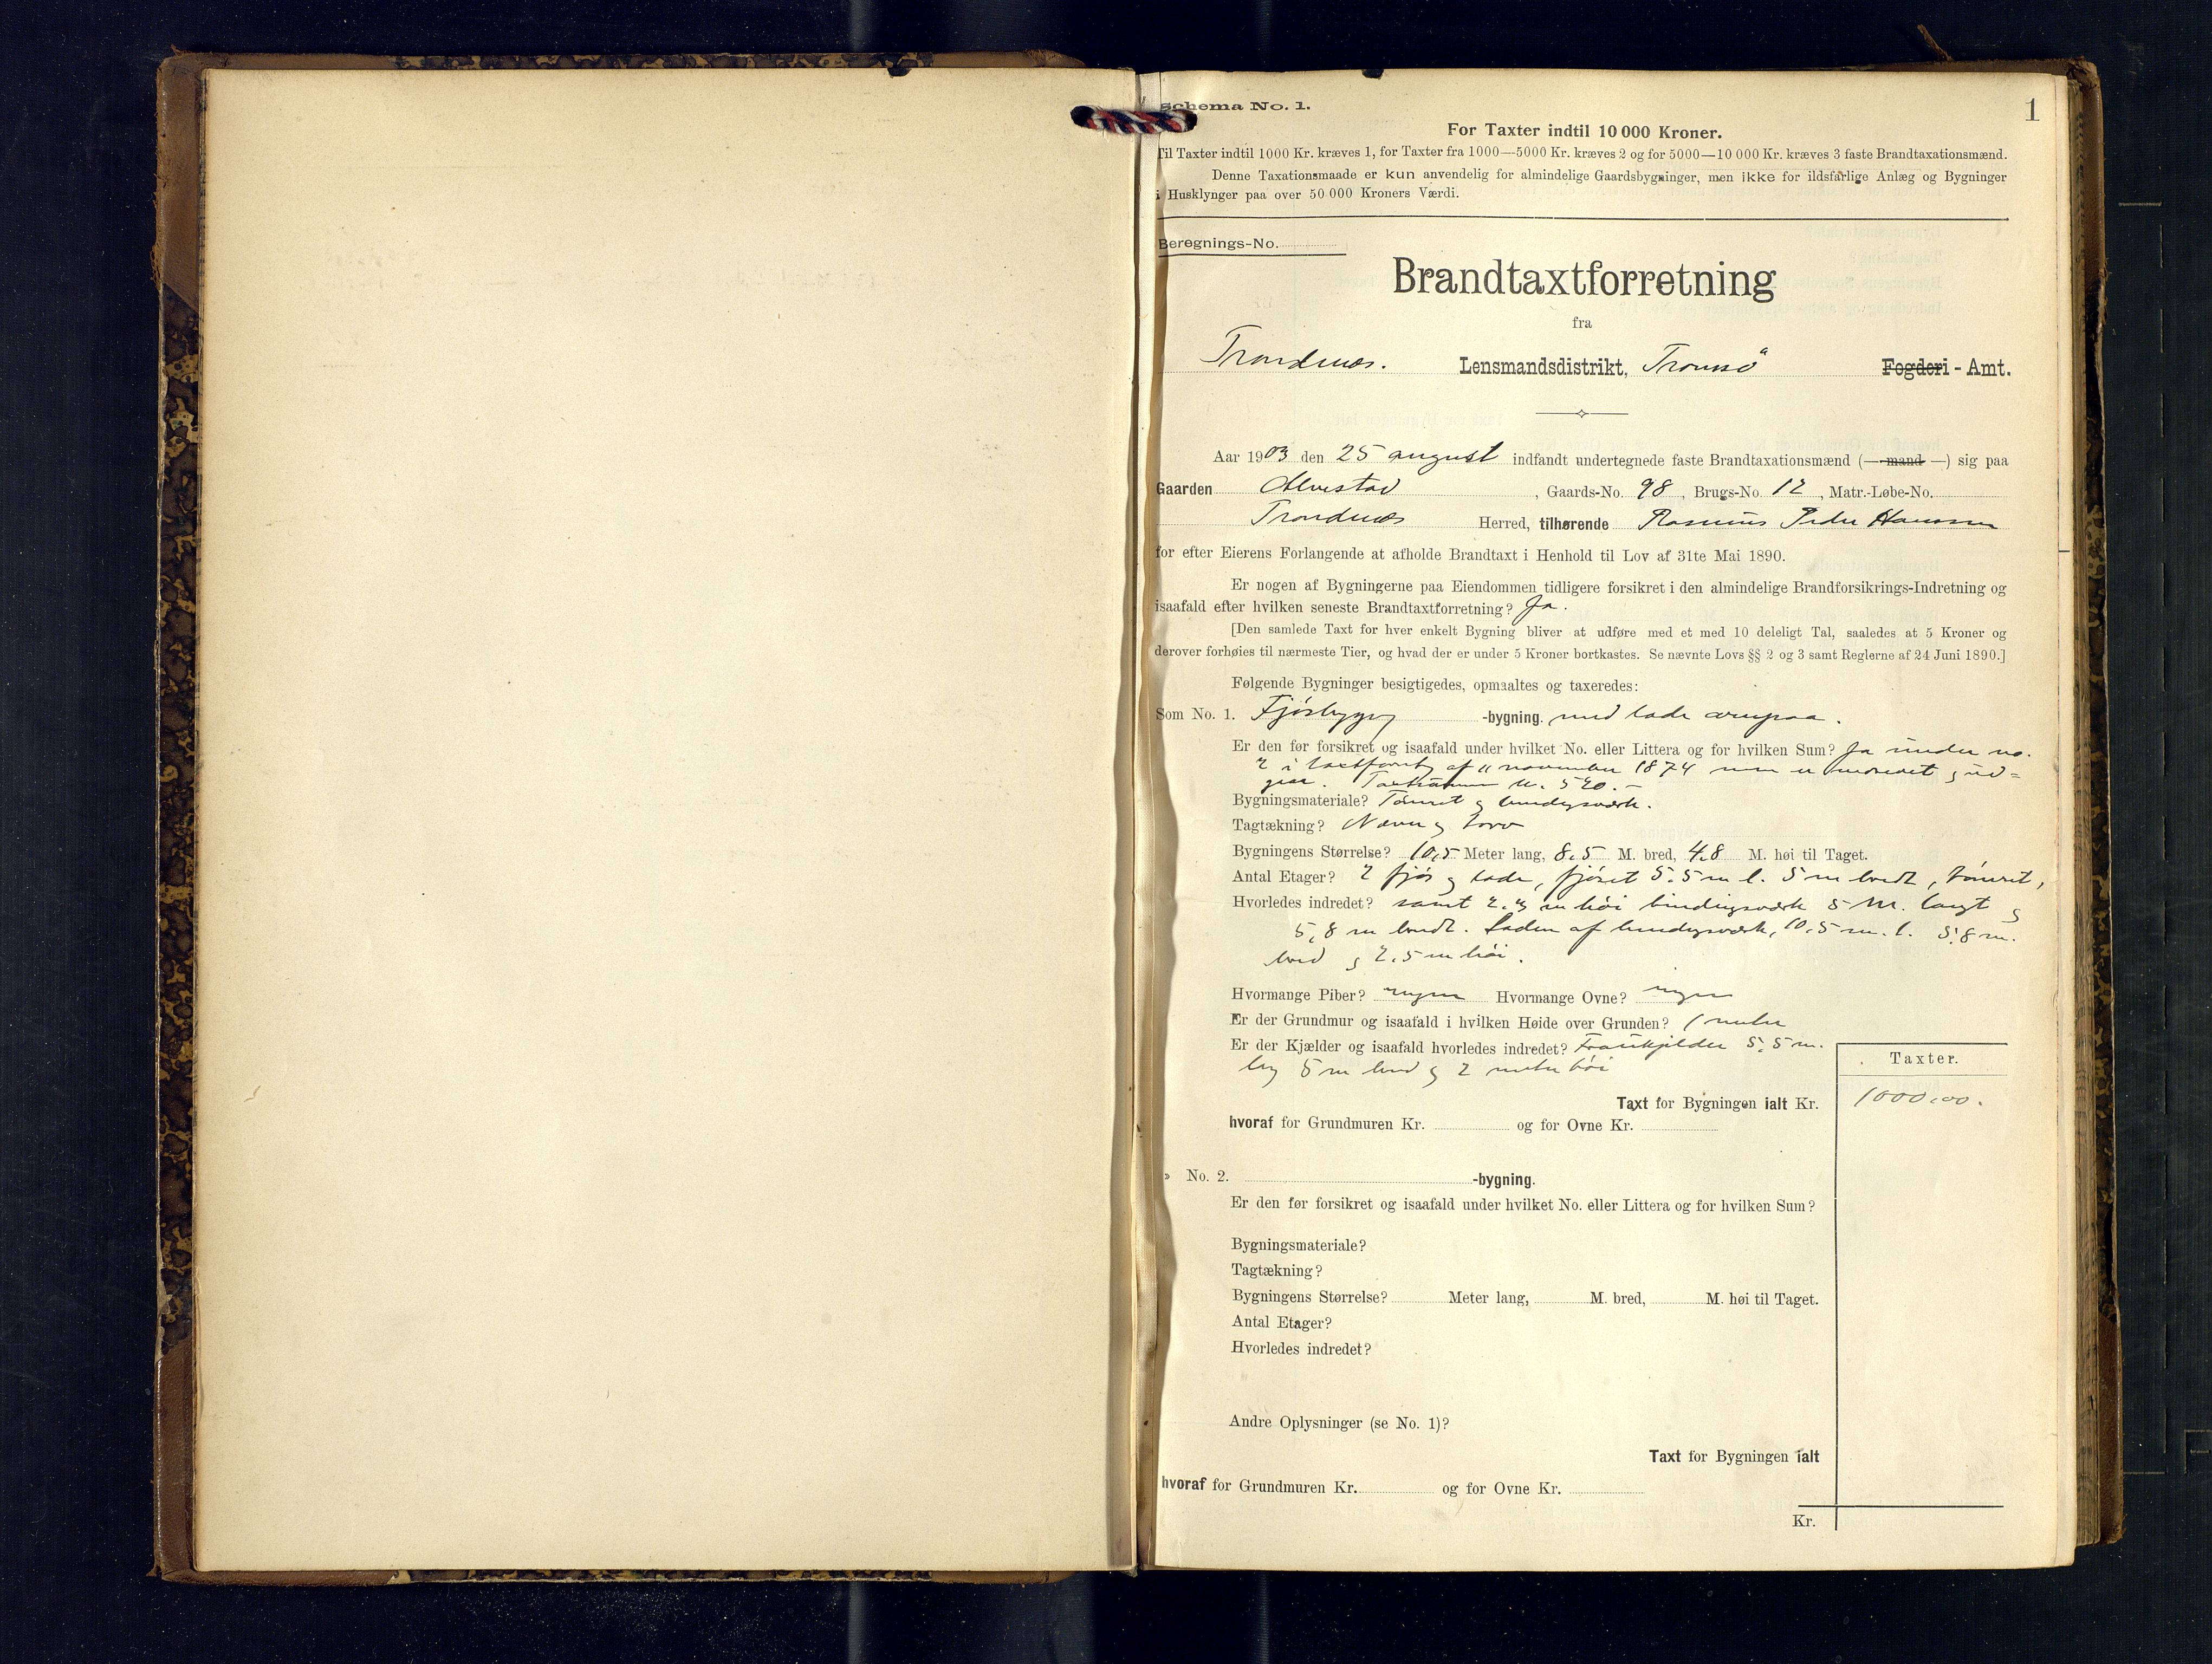 1
Schema No. 1.
For Taxter indtil 10 000 Kroner.
Til Taxter indtil 1000 Kr. kræves 1, for Taxter fra 1000—5000 Kr. kræves 2 og for 5000—10 000 Kr. kræves 3 faste Brandtaxationsmænd.
Denne Taxationsmaade er kun anvendelig for almindelige Gaardsbygninger, men ikke for ildsfarlige Anlæg og Bygninger
i Husklynger paa over 50 000 Kroners Værdi.
Beregnings-No.
Brandtaxtforretning
fra
Trondenes. Lensmandsdistrikt, Tromsø Fogderi - Amt.
Aar 1903 den 25 august indfandt undertegnede faste Brandtaxationsmænd (— mand —) sig paa
Gaarden Alvestad, Gaards-No. 98, Brugs-No. 12, Matr.-Løbe-No.
Trondenes Herred, tilhørende Rasmus Peder Hanssen
for efter Eierens Forlangende at afholde Brandtaxt i Henhold til Lov af 31te Mai 1890.
Er nogen af Bygningerne paa Eiendommen tidligere forsikret i den almindelige Brandforsikrings-Indretning og
isaafald efter hvilken seneste Brandtaxtforretning? Ja.
[Den samlede Taxt for hver enkelt Bygning bliver at udføre med et med 10 deleligt Tal, saaledes at 5 Kroner og
derover forhøies til nærmeste Tier, og hvad der er under 5 Kroner bortkastes. Se nævnte Lovs §§ 2 og 3 samt Reglerne af 24 Juni 1890.]
Følgende Bygninger besigtigedes, opmaaltes og taxeredes:
Som No. 1. Fjøsbygg -bygning. med lade ovenpaa.
Er den før forsikret og isaafald under hvilket No. eller Littera og for hvilken Sum? Ja under no.
2 i taxtforretn af 11 november 1874 men er nedrevet og ud=
gaar. Taxtsummen kr. 520.-
Bygningsmateriale? Tømret og bindingsværk.
Tagtækning? Næver og torv
Bygningens Størrelse? 10,5 Meter lang, 8,5 M. bred, 4,8 M. høi til Taget.
Antal Etager? 2 fjøs og lade, fjøset 5,5 m l. 5 m bredt, tømret,
Hvorledes indredet? samt 2,3 m høi bindingsværk 5 M. langt og
5,8 m bredt. Laden af bindingsværk, 10,5 m. l. 5,8 m.
bred og 2,5 m høi.
Hvormange Piber? ingen Hvormange Ovne? ingen
Er der Grundmur og isaafald i hvilken Høide over Grunden? 1 meter
Er der Kjælder og isaafald hvorledes indredet? 5,5 m.
lng 5 m bred og 2 meter høi
Taxter.
Taxt for Bygningen ialt Kr. 1000,00.
hvoraf for Grundmuren Kr. og for Ovne Kr.
» No. 2. -bygning.
Er den før forsikret og isaafald under hvilket No. eller Littera og for hvilken Sum?
Bygningsmateriale?
Tagtækning?
Bygningens Størrelse? Meter lang, M. bred, M. høi til Taget.
Antal Etager?
Hvorledes indredet?
Andre Oplysninger (se No. 1)?
Taxt for Bygningen ialt
hvoraf for Grundmuren Kr. og for Ovne Kr.
Kr.